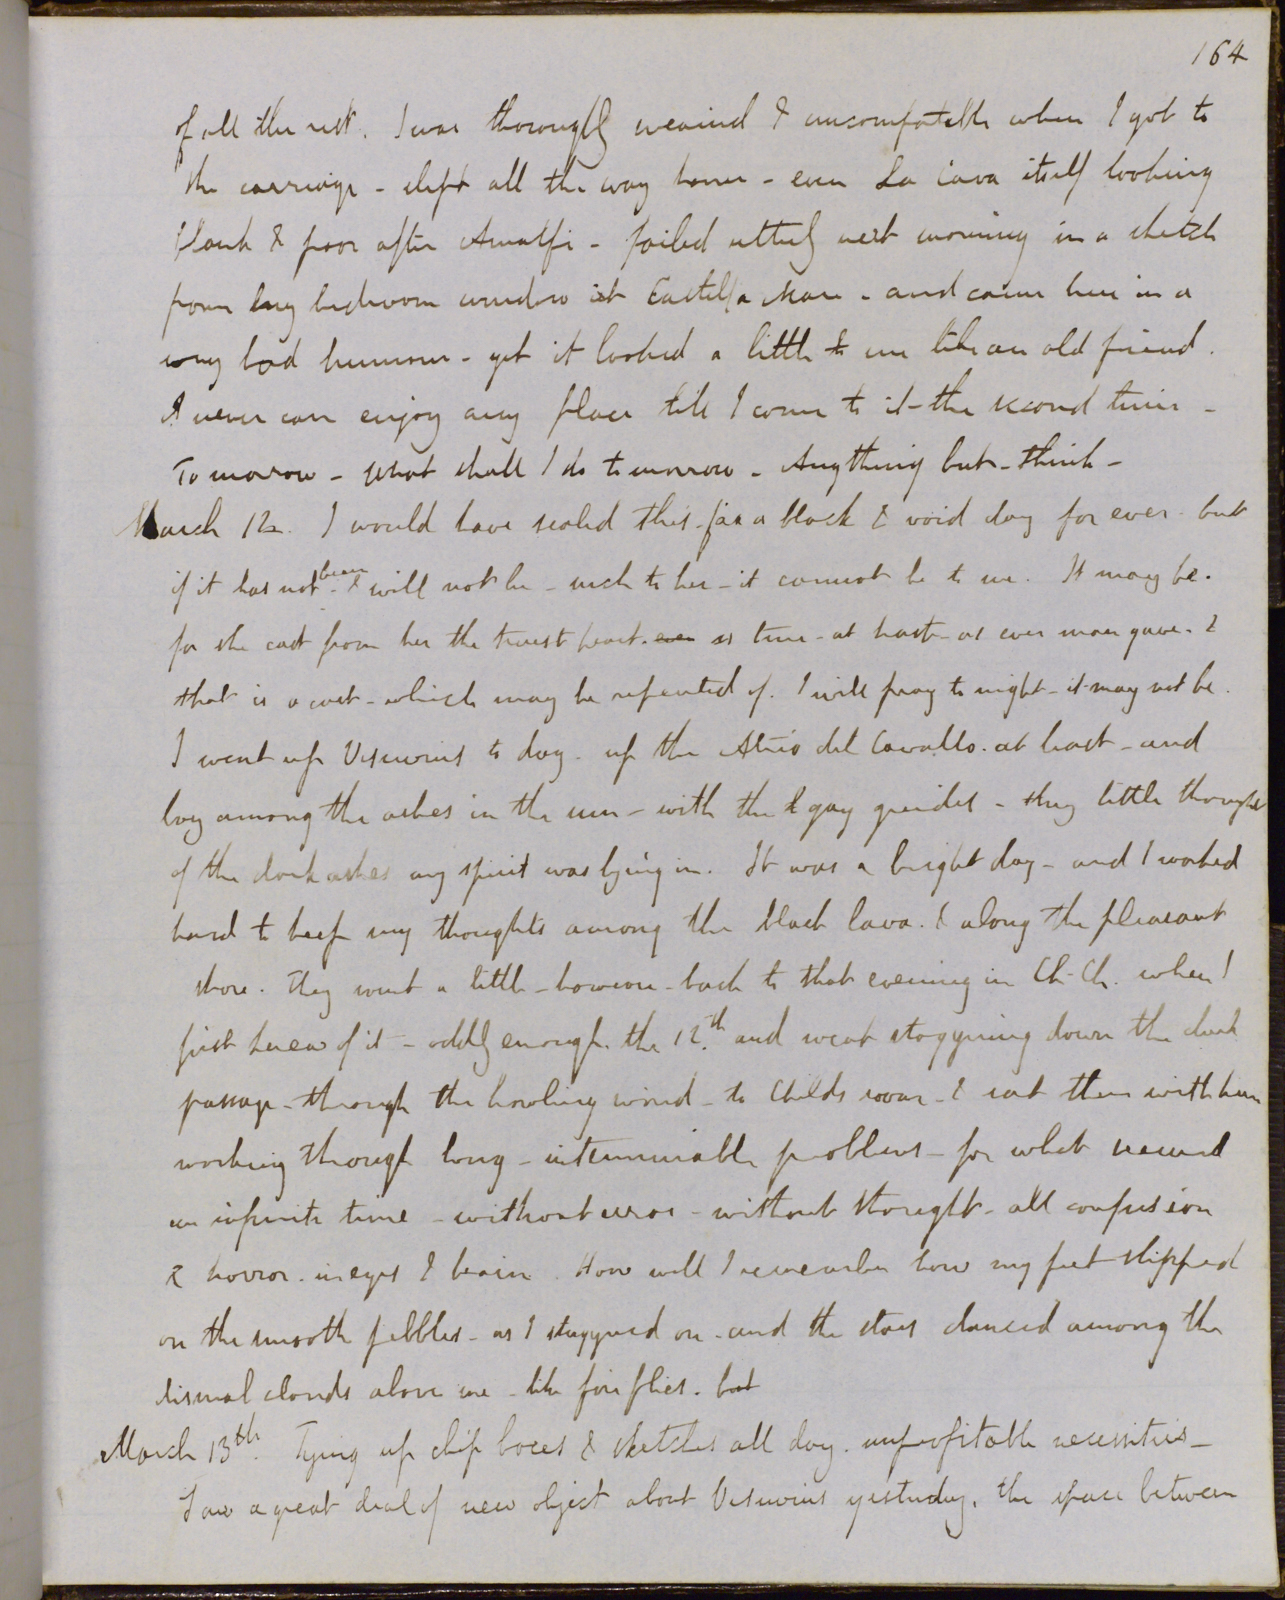 164
of all the rest. I was thoroughly wearied & uncomfortable when I got to
the carriage - slept all the way home - even La Cava itself looking
blank & poor after Amalfi - failed utterly next morning in a sketch
from my bedroom window at Castella Mare - and came here in a
very bad humour - yet it looked a little to me like an old friend.
I never can enjoy any place till I come to it - the second time -
Tomorrow - what shall I do tomorrow - Anything but - think -
March 12. I would have sealed this for a black & void day for ever - but
if it has not been - & will not be - such to her - it cannot be to me. It may be.
for she cast from her the truest heart. even as true - at least - as ever man gave - &
that is a cast - which may be repented of. I will pray to night - it may not be.
I went up Vesuvius to day - up the Atrio del Cavallo. at least - and
lay among the ashes in the sun - with the gay guides - they little thought
of the dark ashes my spirit was lying in. It was a bright day - and I worked
hard to keep my thoughts among the black lava. & along the pleasant
shore. They went a little - however - back to that evening in Ch. Ch. when I
first knew of it - oddly enough. the 12th. and went staggering down the dark
passage - through the howling wind - to Childs room - & sat there with him
working through long - interminable problems - for what seemed
an infinite time - without error - without thought - all confusion
& horror. in eyes & brain. How well I remember how my feet slipped
on the smooth pebbles - as I staggered on - and the stars danced among the
dismal clouds above me - like fire flies. but
March 13th. Tying up chip boxes & sketches all day. unprofitable necessities -
Saw a great deal of new object about Vesuvius yesterday, the space between